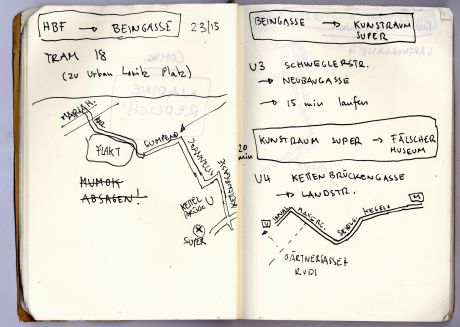 HBF → BEINGASSE
23/15
TRAM 18
(zu Urban Loritz Platz)
MARIAH.
GUMPEND
FLAKT
KETTENBRÜCKE
MUMOK
ABSAGEN!
SUPER
BEINGASSE → KUNSTRAUM
SUPER
U3 SCHWEGLERSTR.
→ NEUBAUGASSE
→ 15 min laufen
20
min
KUNSTRAUM SUPER → FÄLSCHER
MUSEUM
U4 KETTENBRÜCKENGASSE
→ LANDSTR.
U
M
GÄRTNERGASSE 4
RUDI